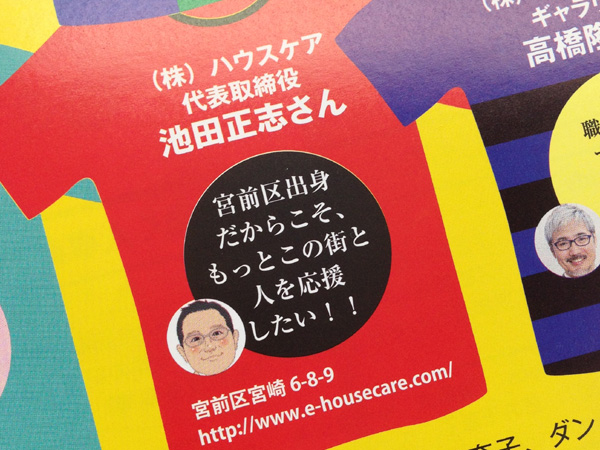 （株）ハウスケア
代表取締役
池田正志さん
宮前区出身
だからこそ、
もっとこの街と
人を応援
したい！！
宮前区宮崎 6-8-9
http://www.e-housecare.com/
（株）
ギャラ
高橋
職
、ダン